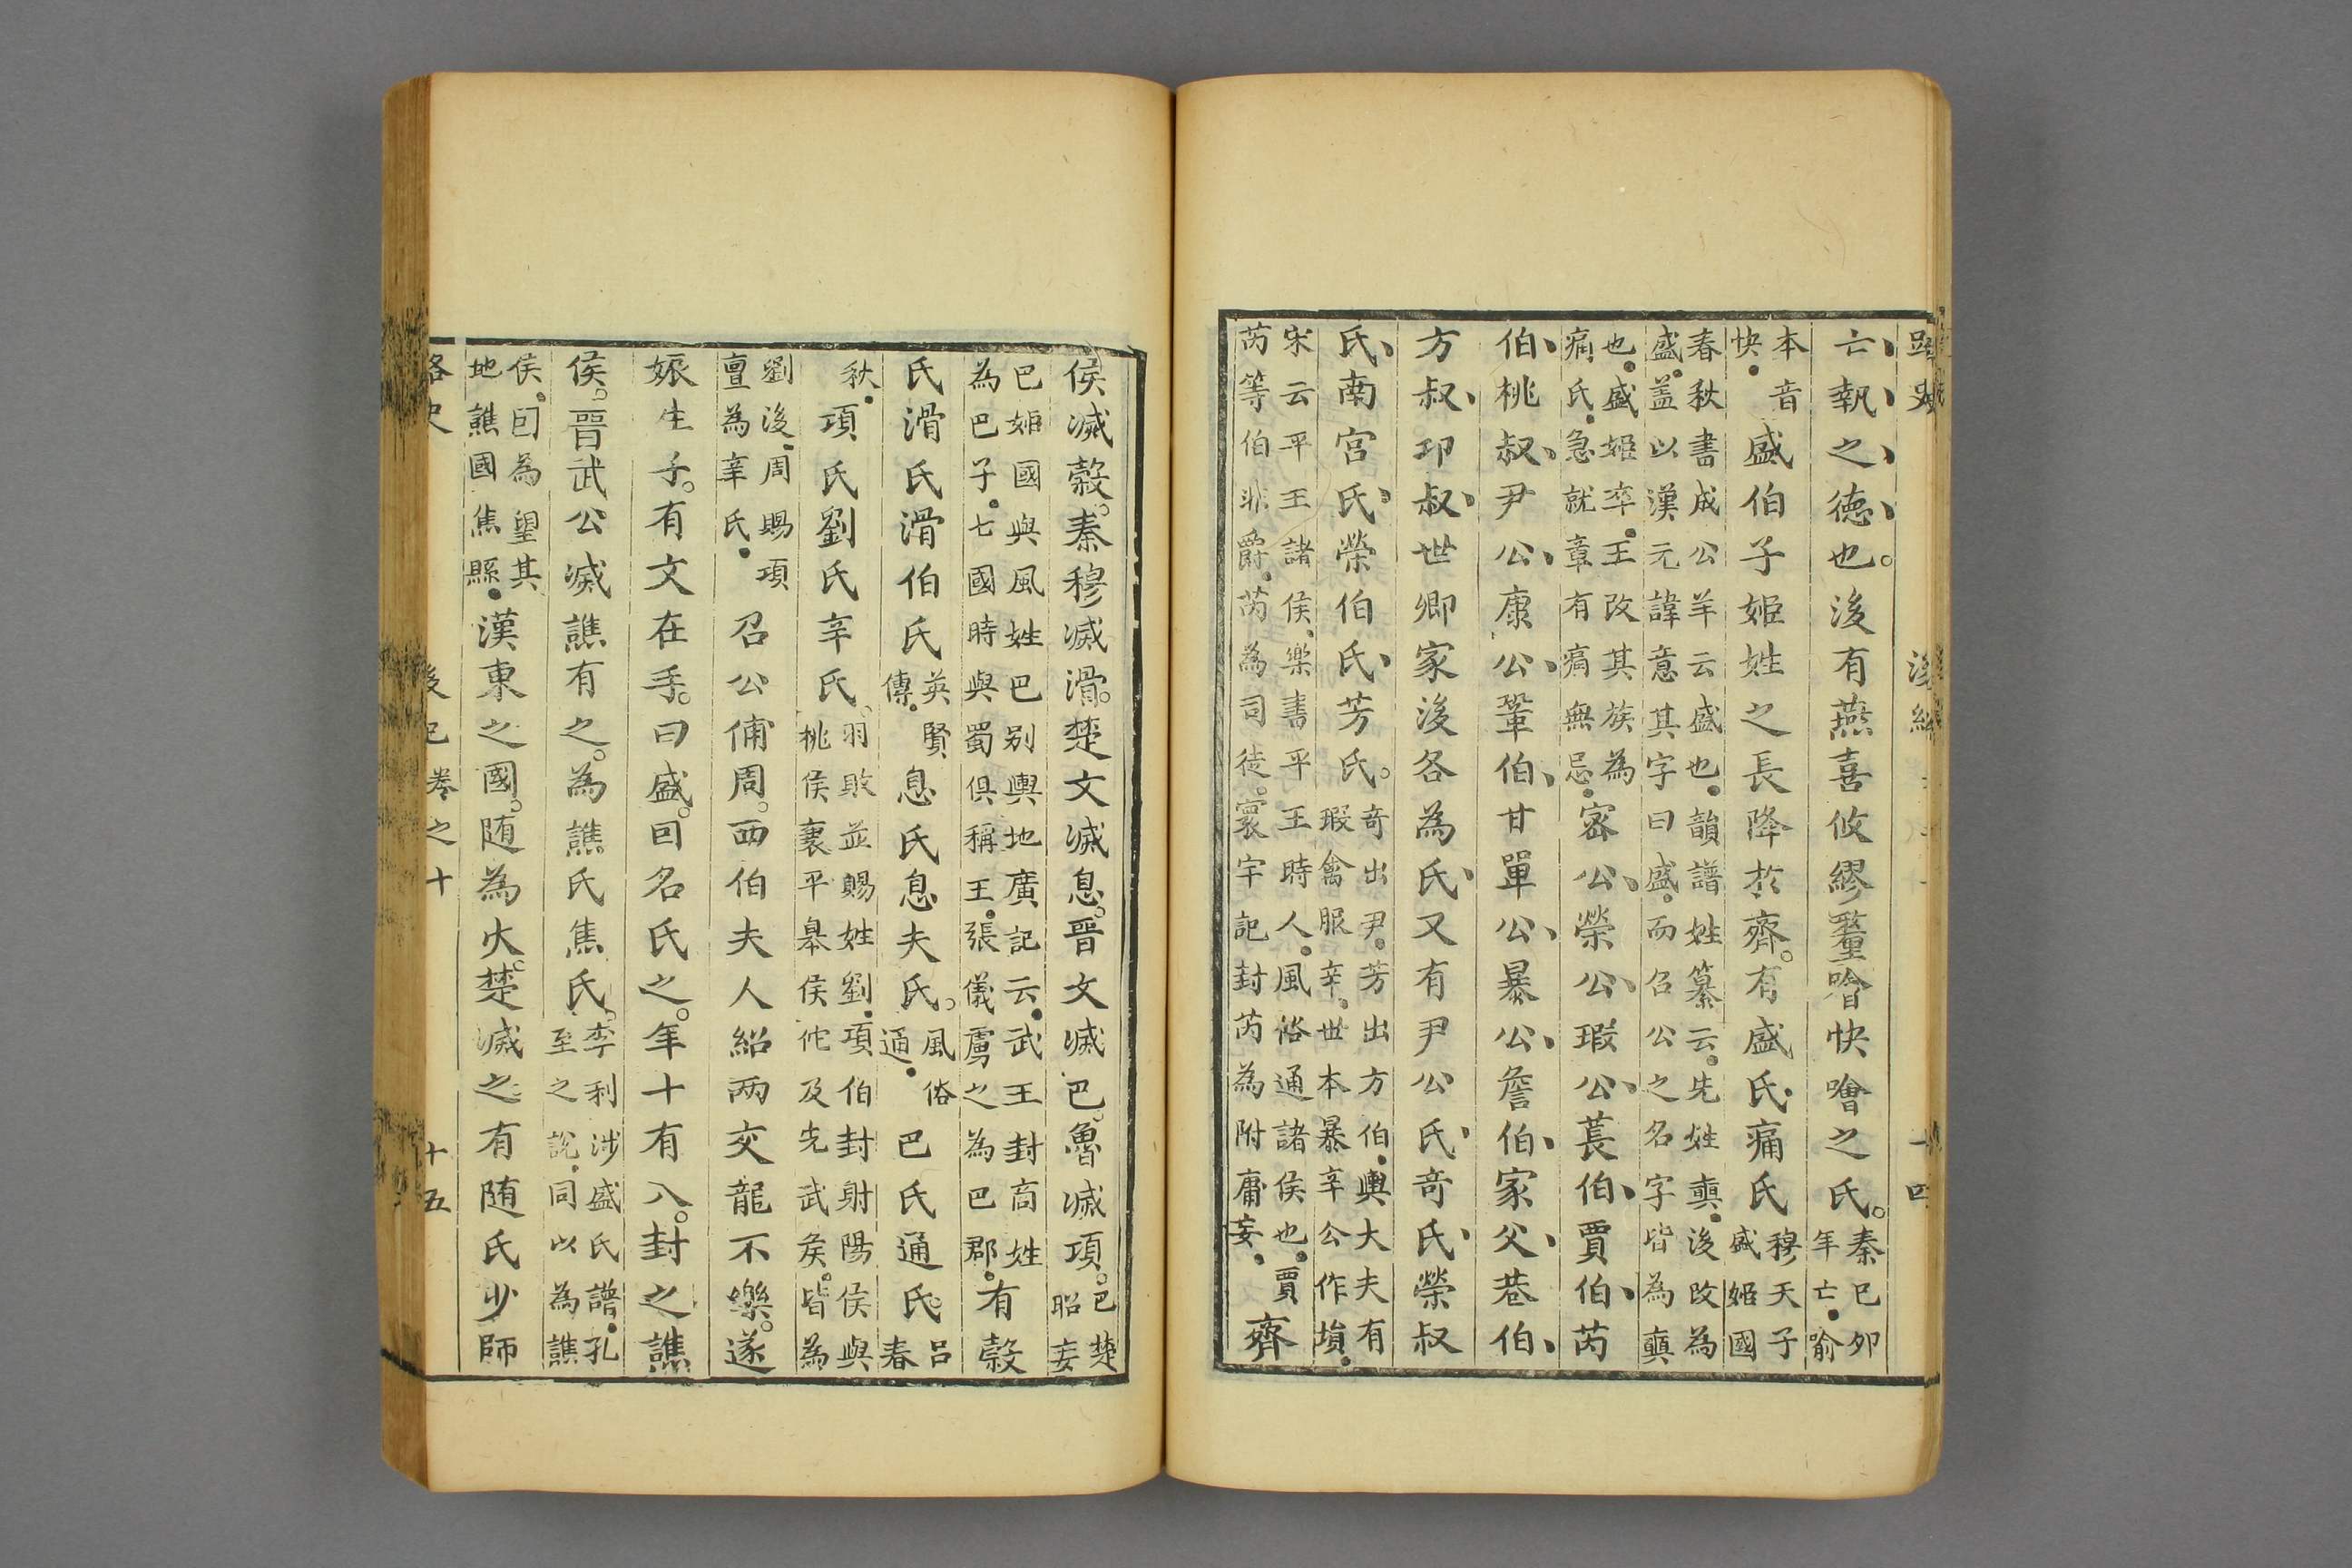 亡執之德也後有燕喜攸繆䥯噲快噲之氏秦巳夘年亡喻
本音快盛伯子姬姓之長降扵齊有盛氏痛氏穆天子盛姬國
春秋書成公羊云盛也韻譜姓纂云先姓奭後改為盛盖以漢元諱意其字曰盛而召公之名字皆為奭
也盛姬卒王改其族為痛氏急就章有痛無忌宻公榮公瑕公萇伯賈伯芮
伯桃叔尹公康公鞏伯甘單公暴公詹伯家父巷伯
方叔卭叔世卿家後各為氏又有尹公氏竒氏榮叔
氏南宫氏榮伯氏芳氏竒出尹芳出方伯輿大夫有瑕禽服辛世本暴辛公作塤
宋云平王諸侯樂書平王時人風俗通諸侯也賈芮等伯非爵芮為司徒寰宇記封芮為附庸妄齊
侯滅糓秦穆滅滑楚文滅息晉文滅巴魯滅項巴楚昭妄
巴姬國與風姓巴别輿地廣記云武王封高姓為巴子七國時與蜀俱稱王張儀虜之為巴郡有糓
氏滑氏滑伯氏英賢傳息氏息夫氏風俗通巴氏通氏吕春
秋項氏劉氏辛氏羽敗並賜姓劉項伯封射陽侯與桃侯襄平臯侯佗及先武矦皆為
劉後周賜項亶為辛氏召公俌周西伯夫人紹兩交龍不樂遂
娠生子有文在手曰盛囙名氏之年十有八封之譙
侯晉武公滅譙有之為譙氏焦氏李利涉盛氏譜孔至之説同以為譙
侯囙為望其地譙國焦縣漢東之國随為大楚滅之有随氏少師
後紀卷之十
十五